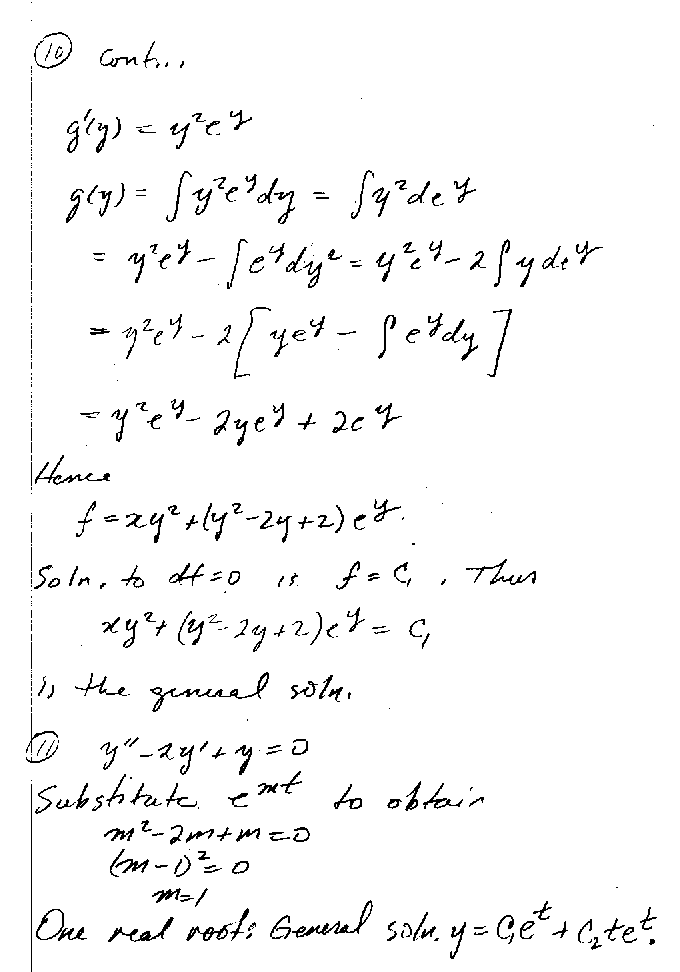 ⑩ Cont...
g'(y) = y²e^y
g(y) = ∫y²e^y dy = ∫y²de^y
= y²e^y - ∫e^y dy² = y²e^y - 2∫y de^y
= y²e^y - 2[ye^y - ∫e^y dy]
= y²e^y - 2ye^y + 2e^y
Hence
f = xy² + (y² - 2y + 2)e^y.
Soln. to df = 0 is f = C₁. Thus
xy² + (y² - 2y + 2)e^y = C₁
is the general soln.
⑪ y'' - 2y' + y = 0
Substitute e^mt to obtain
m² - 2m + m = 0
(m - 1)² = 0
m = 1
One real root: General soln. y = C₁e^t + C₂te^t.